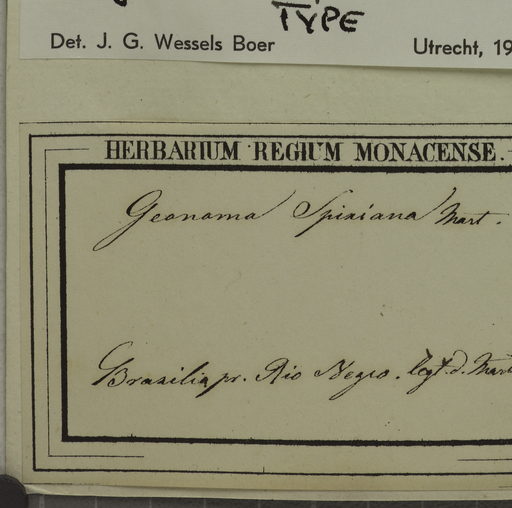 TYPE
Det. J. G. Wessels Boer Utrecht, 19
HERBARIUM REGIUM MONACENSE.
Geonoma Spixiana Mart.
Brazilia pr. Rio Negro. legt. d. Mart